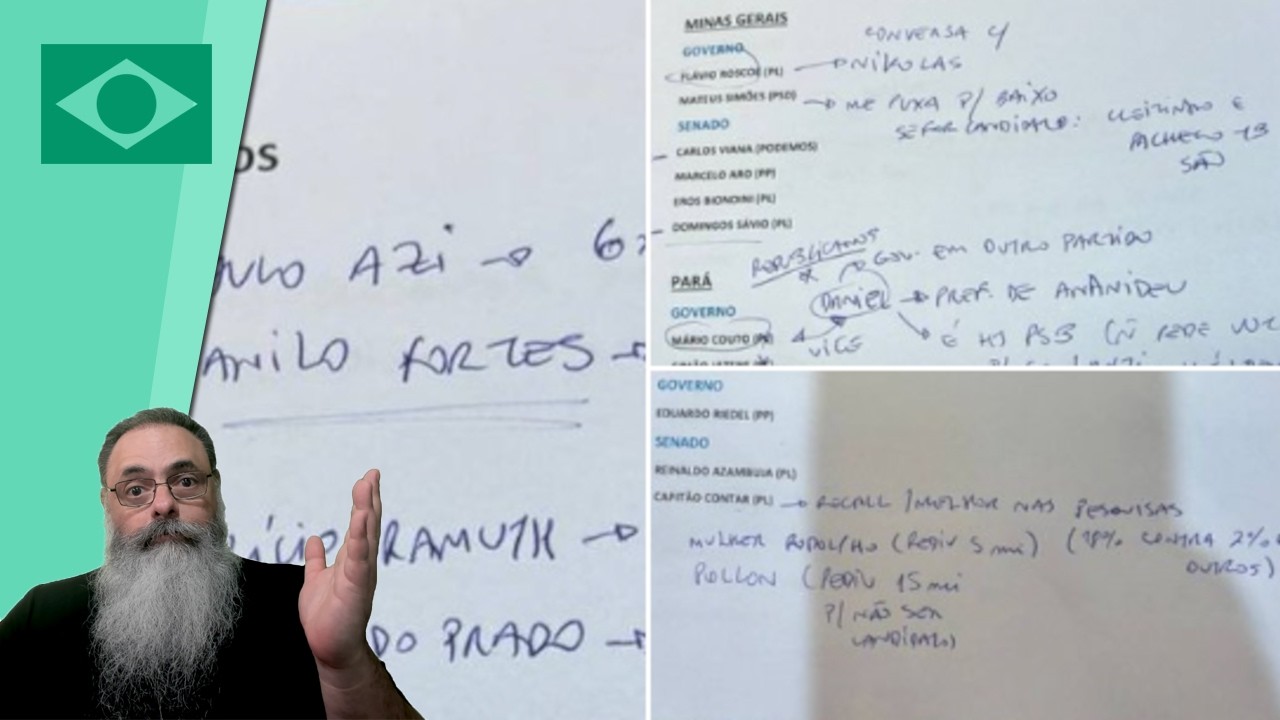 OS
ULO AZI → 6
ANILO FORTES →
ÍCIO RAMUTH →
DO PRADO →
MINAS GERAIS
CONVERSA C/
GOVERNO
FLÁVIO ROSCOE (PL) → NIKOLAS
MATEUS SIMÕES (PSD) → ME PUXA P/ BAIXO
SENADO
SE FOR CANDIDATO: CLEITINHO E
PACHECO
SÃO
CARLOS VIANA (PODEMOS)
MARCELO ARO (PP)
EROS BIONDINI (PL)
DOMINGOS SÁVIO (PL)
REPUBLICANOS
GOV. EM OUTRO PARTIDO
PARÁ
DANIEL → PREF. DE ANANIDEU
GOVERNO
MÁRIO COUTO (PL)
VICE
É HJ PSB (Ñ PEDE
GOVERNO
EDUARDO RIEDEL (PP)
SENADO
REINALDO AZAMBUJA (PL)
CAPITÃO CONTAR (PL) → RECALL / MELHOR NAS PESQUISAS
MULHER RODOLFHO (PEDIU 5 mi) (18% CONTRA 2%
OUTROS)
POLLON (PEDIU 15 mi
P/ NÃO SER
CANDIDATO)